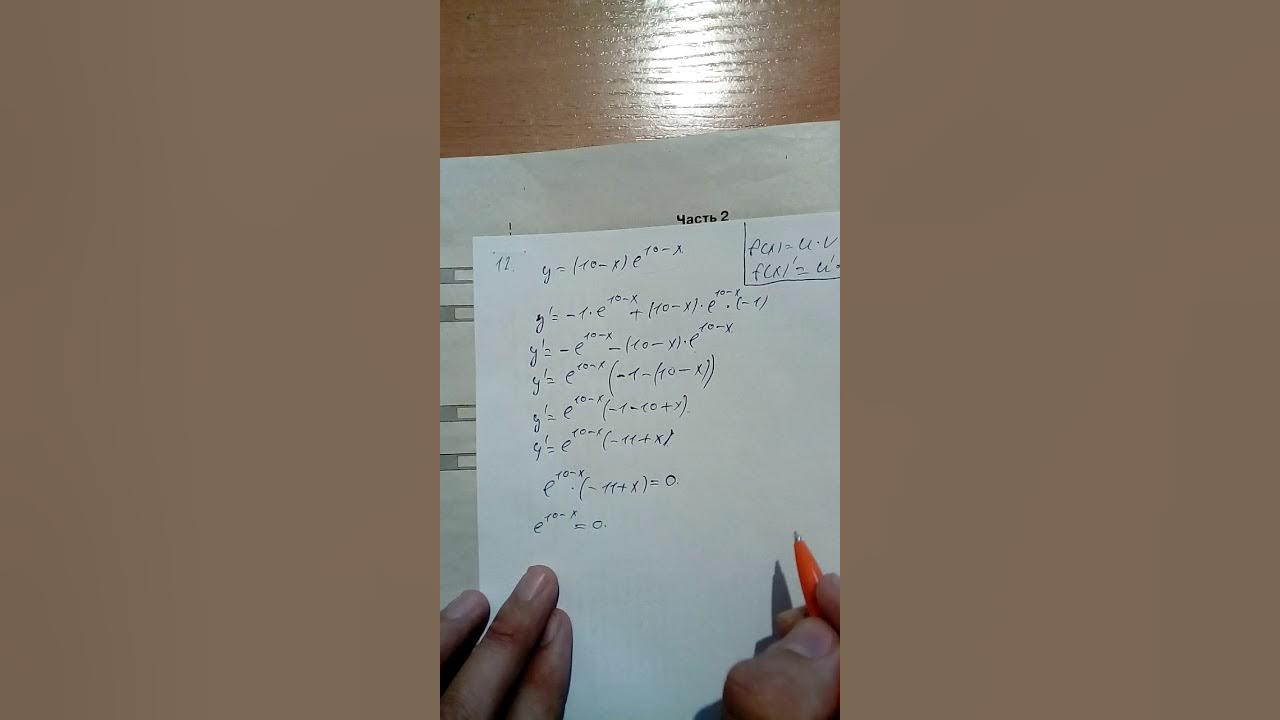 Часть 2
12. y=(10-x)e^{10-x}
f(x)=u·v
f(x)'=u'
y'=-1·e^{10-x}+(10-x)·e^{10-x}·(-1)
y'=-e^{10-x}-(10-x)·e^{10-x}
y'=e^{10-x}(-1-(10-x))
y'=e^{10-x}(-1-10+x)
y'=e^{10-x}(-11+x)
e^{10-x}·(-11+x)=0.
e^{10-x}=0.